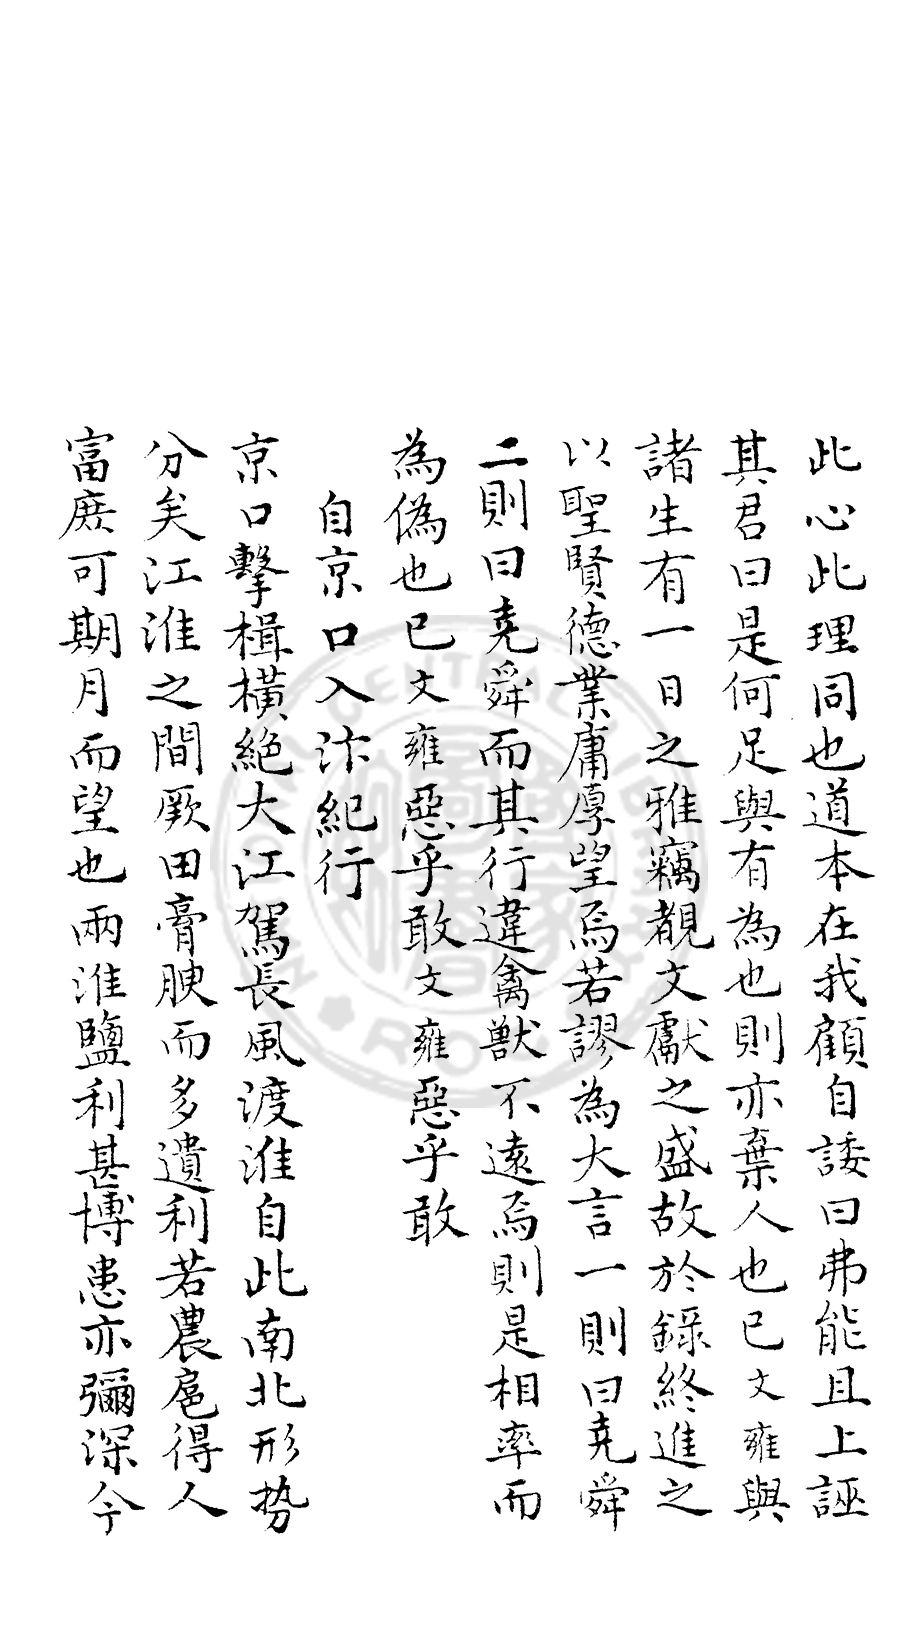 此心此理同也道本在我顧自諉曰弗能且上誣
其君曰是何足與有為也則亦棄人也已文雍與
諸生有一日之雅竊覩文獻之盛故於錄終進之
以聖賢德業庸厚望焉若謬為大言一則曰堯舜
二則曰堯舜而其行違禽獸不遠焉則是相率而
為偽也已文雍惡乎敢文雍惡乎敢
自京口入汴紀行
京口擊楫橫絕大江駕長風渡淮自此南北形势
分矣江淮之間厥田膏腴而多遺利若農扈得人
富庶可期月而望也兩淮鹽利甚博患亦彌深今
NATIONAL CENTRAL LIBRARY